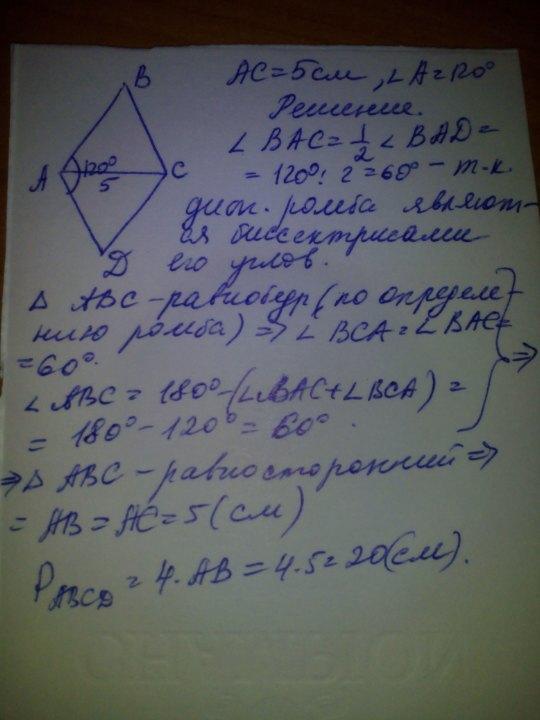 B
A
120°
5
C
D
AC=5см, ∠A=120°
Решение.
∠ BAC = 1/2 ∠ BAD =
= 120°: 2 = 60° – т.к.
диаг. ромба являют-
ся биссектрисами
его углов.
Δ ABC – равнобедр (по определе-
нию ромба) => ∠ BCA = ∠ BAC =
= 60°.
∠ ABC = 180° – (∠BAC+∠BCA) =
= 180° – 120° = 60°.
=>
=> Δ ABC – равносторонний =>
= AB = AC = 5 (см)
P ABCD = 4. AB = 4.5 = 20(см).